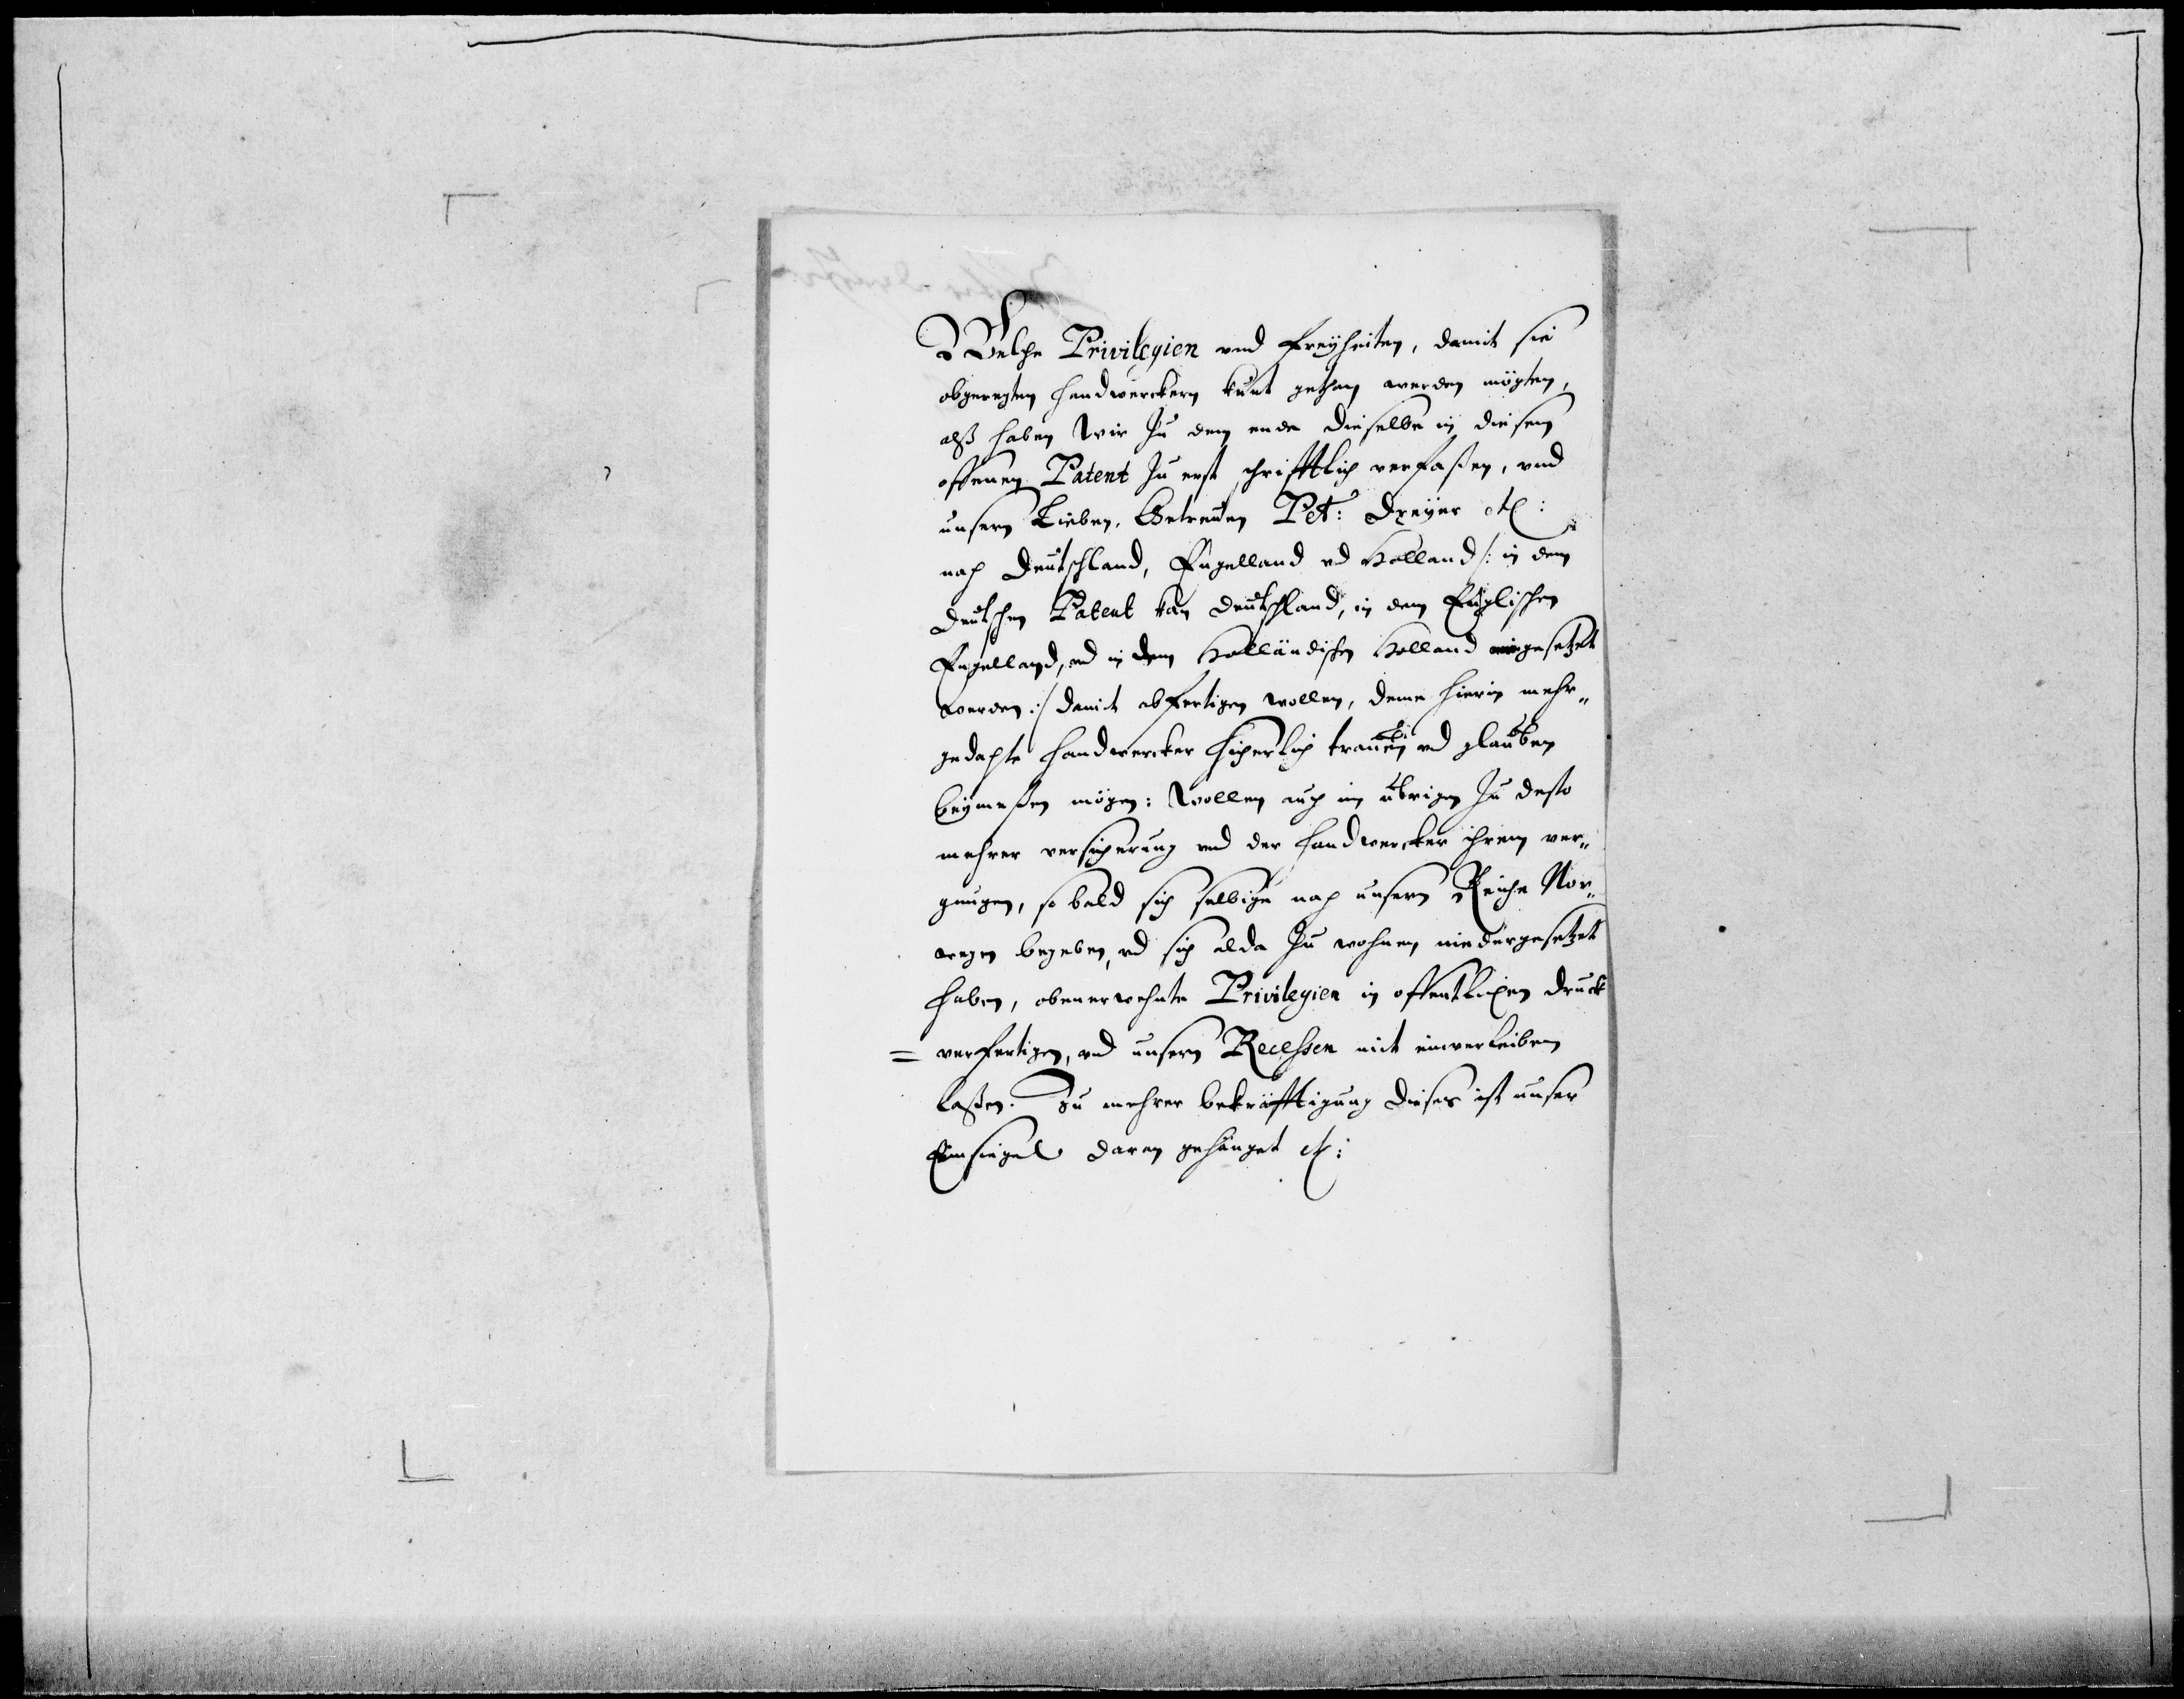 Welche Privilegien vnd Freyheiten, damit sie
obgeregten handwerckern kunt gethan werden mögten,
alß haben Wir zu dem ende dieselbe in diesem
offenen Patent zu erst schrifftlich verfaßen, vnd
unsern Lieben, Getreuen Pet: Dreyer etc:
nach Deutschland, Engelland vnd Holland /: in dem
deutschen Patent kan Deutschland, in dem Englischen
Engelland, vnd in dem Holländischen Holland eingesetzet
werden :/ damit abfertigen wollen, deme hierin mehr„
gedachte handwercker sicherlich trauen vnd glauben
beymeßen mögen: Wollen auch im übrigen zu desto
mehrer versicherung vnd der handwercker ihrem ver„
gnugen, so bald sich selbige nach unserm Reiche Nor„
wegen begeben, vnd sich alda zu wohnen niedergesetzet
haben, obenerwehnte Privilegien in offentlichen druck
= verfertigen, vnd unsern Recessen mit einverleiben
laßen. Zu mehrer bekräfftigung dieses ist unser
daran gehänget etc: